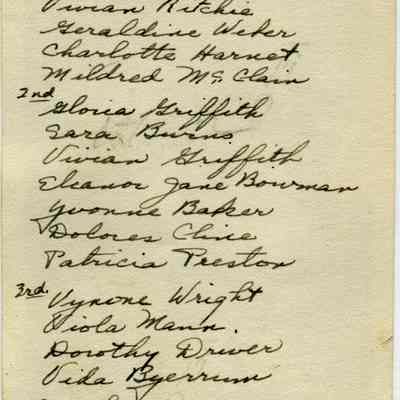 Vivian Ritchie
Geraldine Weber
Charlotte Harnet
Mildred McClain
2nd Gloria Griffith
Sara Burns
Vivian Griffith
Eleanor Jane Bowman
Yvonne Baker
Dolores Cline
Patricia Preston
3rd Vynone Wright
Viola Mann.
Dorothy Driver
Vida Byerrum